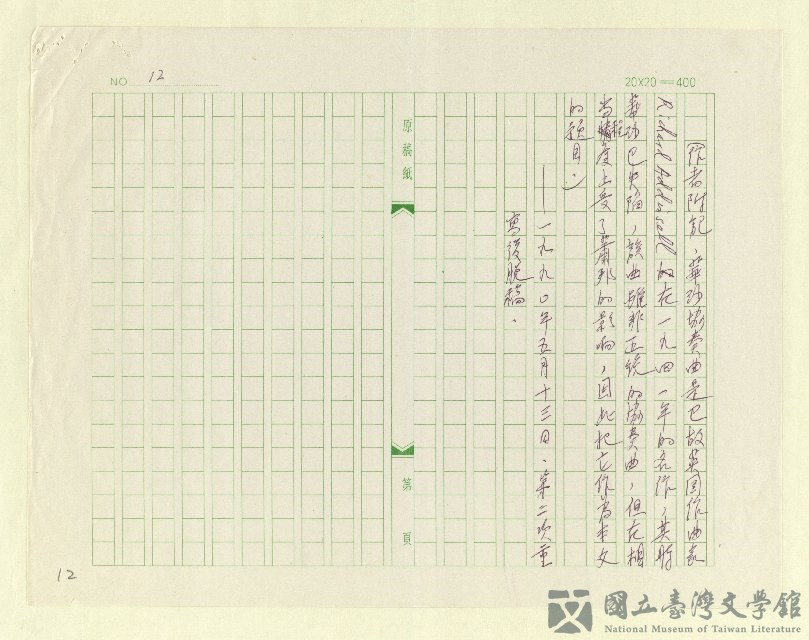 NO 12
20X20=400
（作者附記，華沙協奏曲是已故英国作曲家
Richard Addinsell 的在一九四一年的名作，其時
華沙已失陷，該曲雖非正统的協奏曲，但在相
当程度上受了蕭邦的影响，因此把它作為本文
的題目。）
——一九九〇年五月十三日，第二次重
寫後脱稿．
原稿紙
第 頁
12
國立臺灣文學館
National Museum of Taiwan Literature